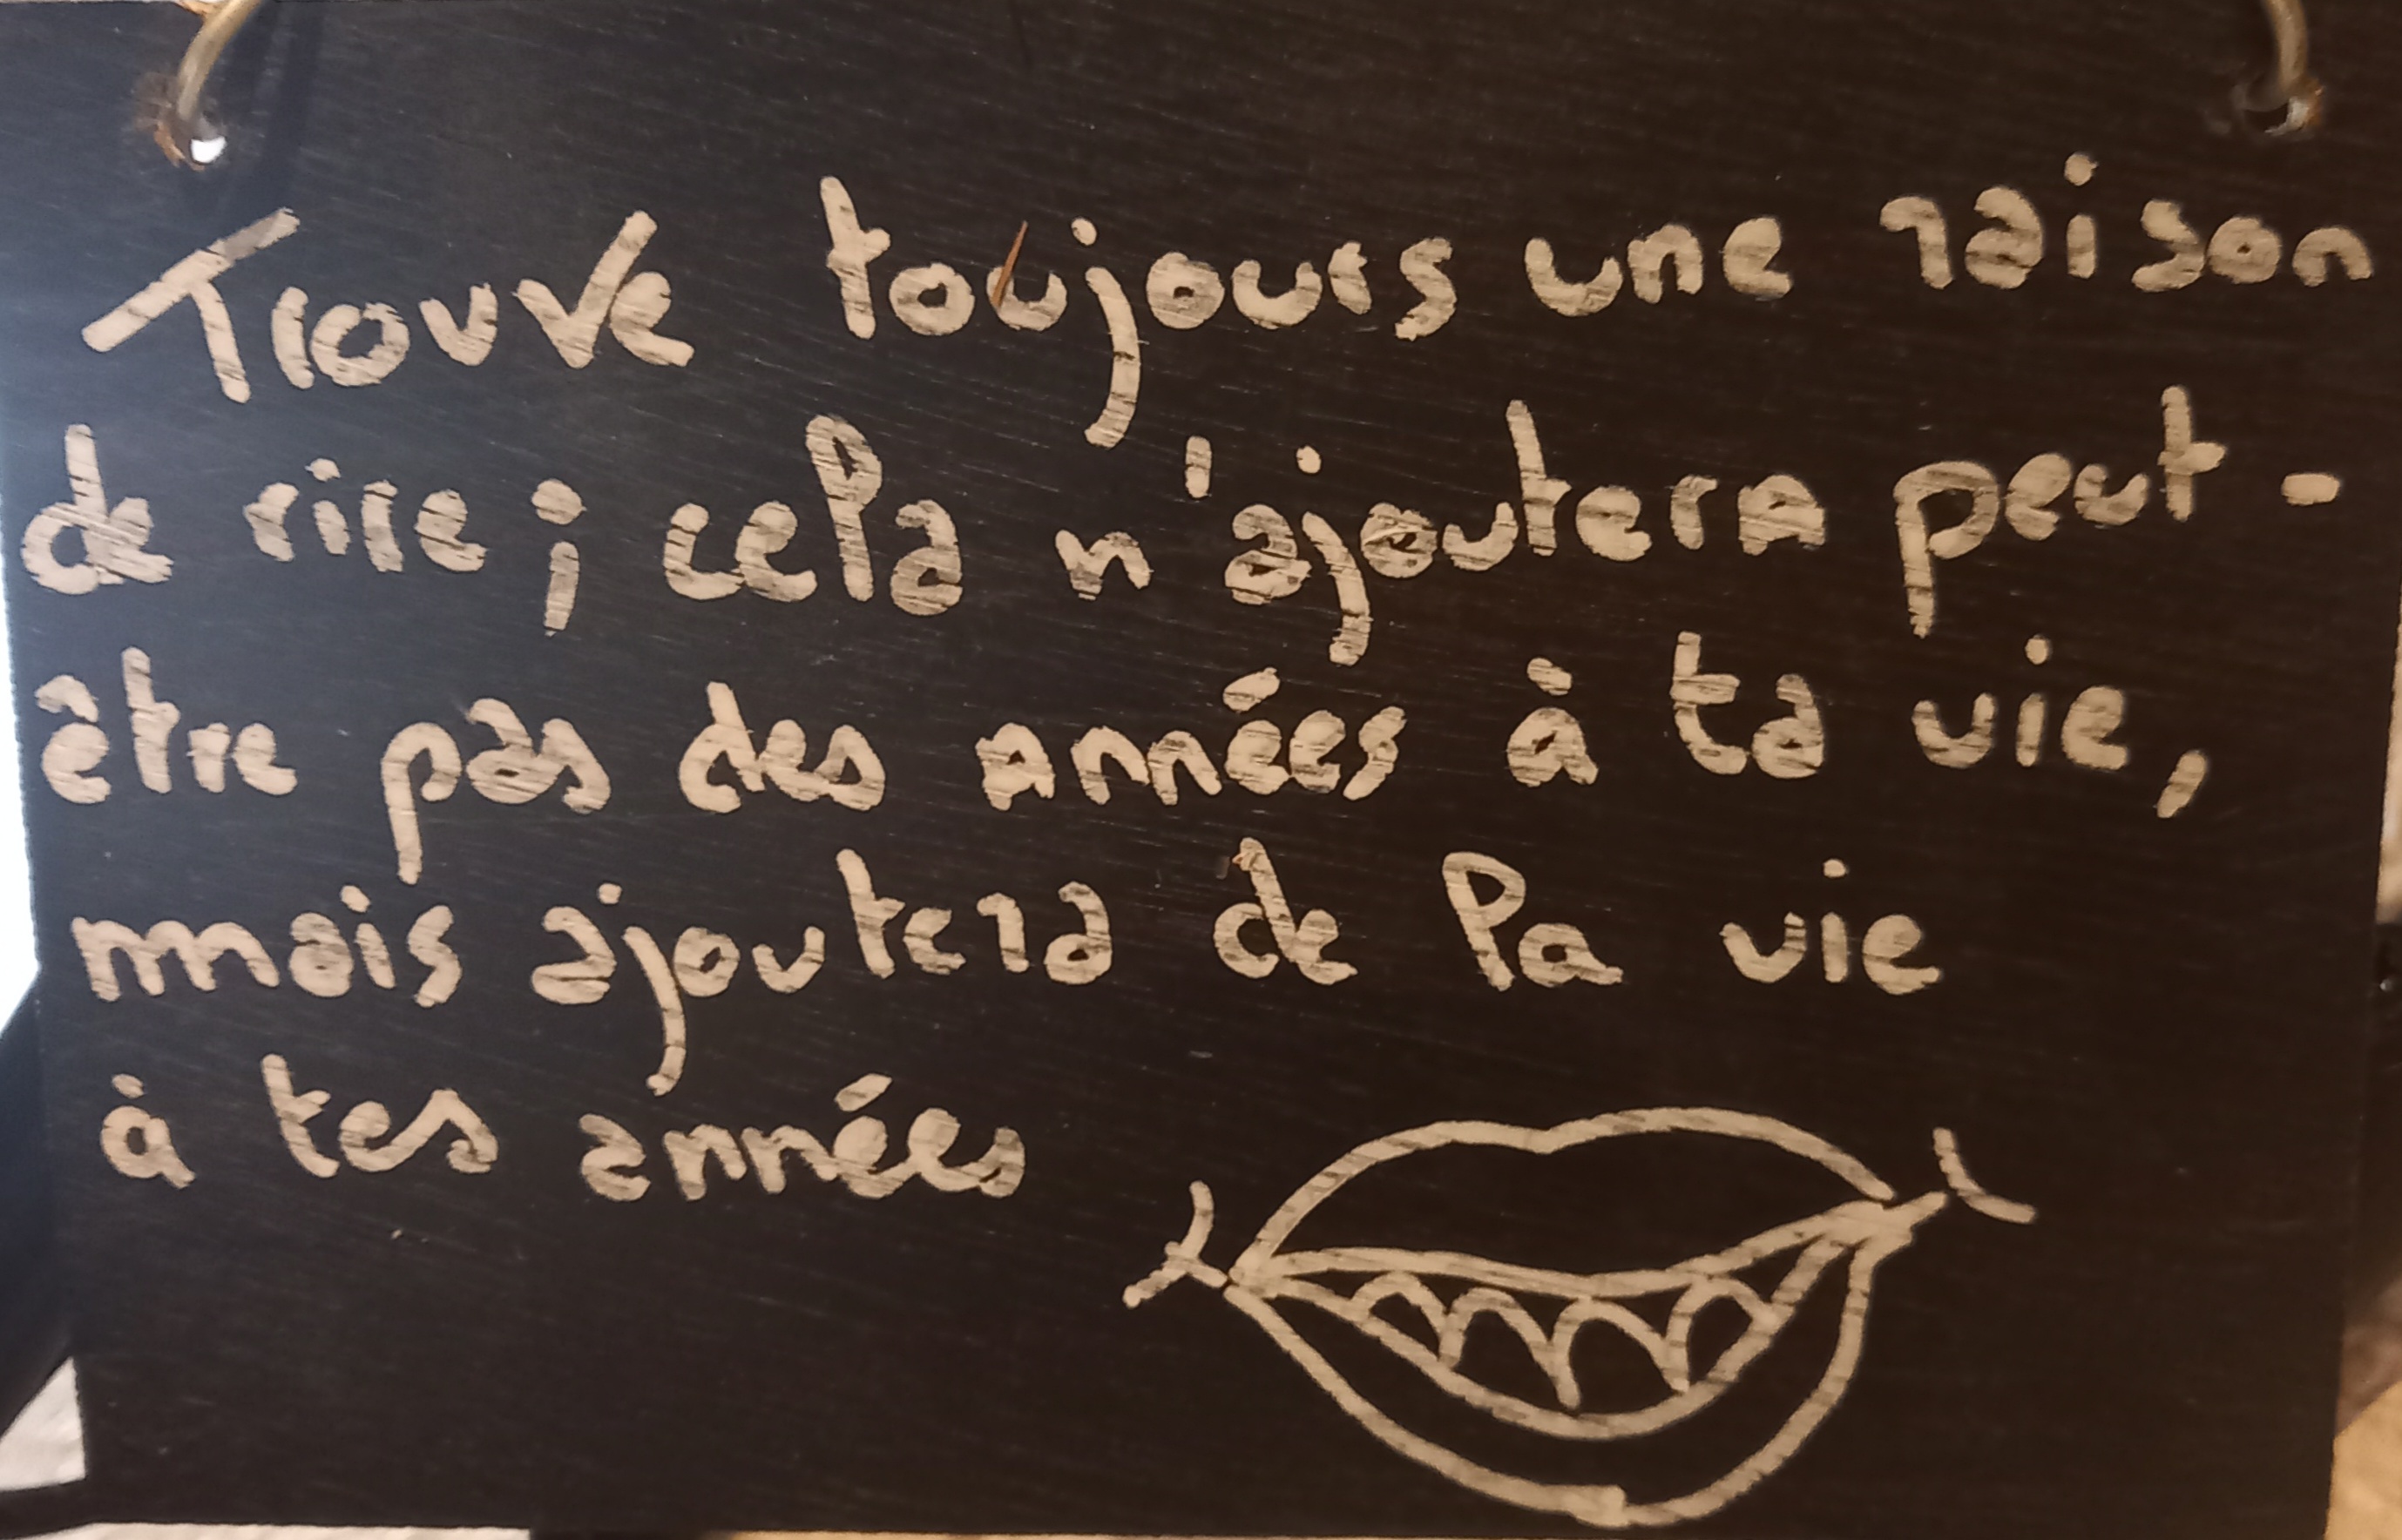 Trouve toujours une raison
de rire ; cela n'ajoutera peut-
être pas des années à ta vie,
mais ajoutera de la vie
à tes années